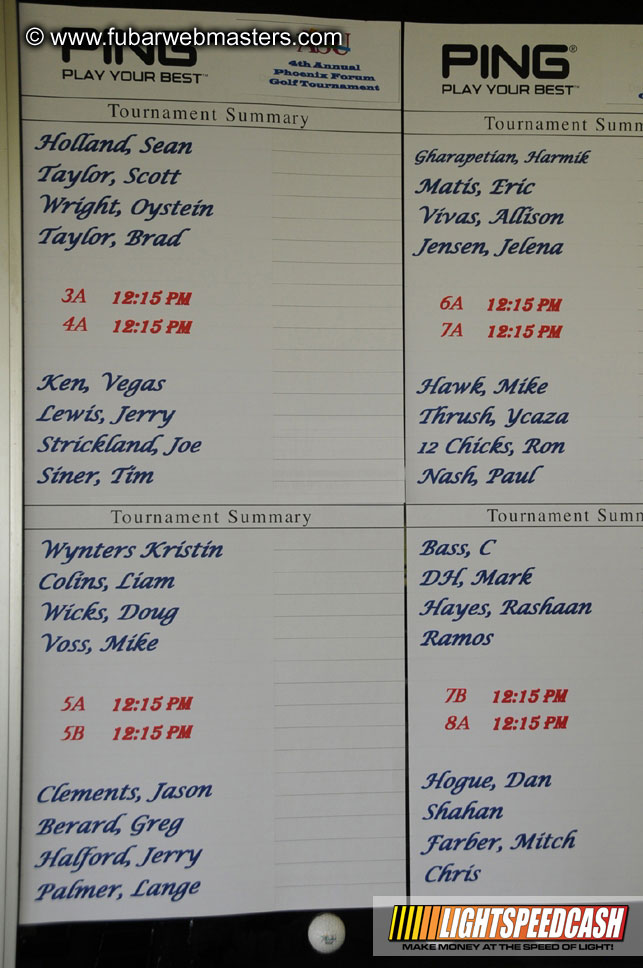 © www.fubarwebmasters.com
PING
PLAY YOUR BEST™
ASU
4th Annual
Phoenix Forum
Golf Tournament
Tournament Summary
Holland, Sean
Taylor, Scott
Wright, Oystein
Taylor, Brad
3A 12:15 PM
4A 12:15 PM
Ken, Vegas
Lewis, Jerry
Strickland, Joe
Siner, Tim
Tournament Summary
Wynters Kristin
Colins, Liam
Wicks, Doug
Voss, Mike
5A 12:15 PM
5B 12:15 PM
Clements, Jason
Berard, Greg
Halford, Jerry
Palmer, Lange
PING®
PLAY YOUR BEST™
Tournament Summ
Gharapetian, Harmik
Matis, Eric
Vivas, Allison
Jensen, Jelena
6A 12:15 PM
7A 12:15 PM
Hawk, Mike
Thrush, Ycaza
12 Chicks, Ron
Nash, Paul
Tournament Summ
Bass, C
DH, Mark
Hayes, Rashaan
Ramos
7B 12:15 PM
8A 12:15 PM
Hogue, Dan
Shahan
Farber, Mitch
Chris
LIGHTSPEEDCASH
MAKE MONEY AT THE SPEED OF LIGHT!